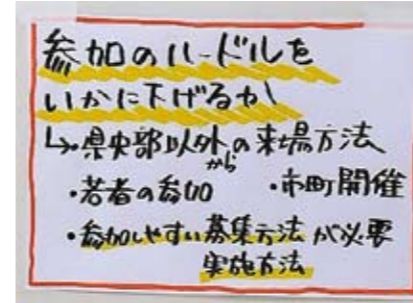 参加のハードルを
いかに下げるか
↳・県央部以外からの来場方法
・若者の参加 ・市町開催
・参加しやすい募集方法が必要
実施方法